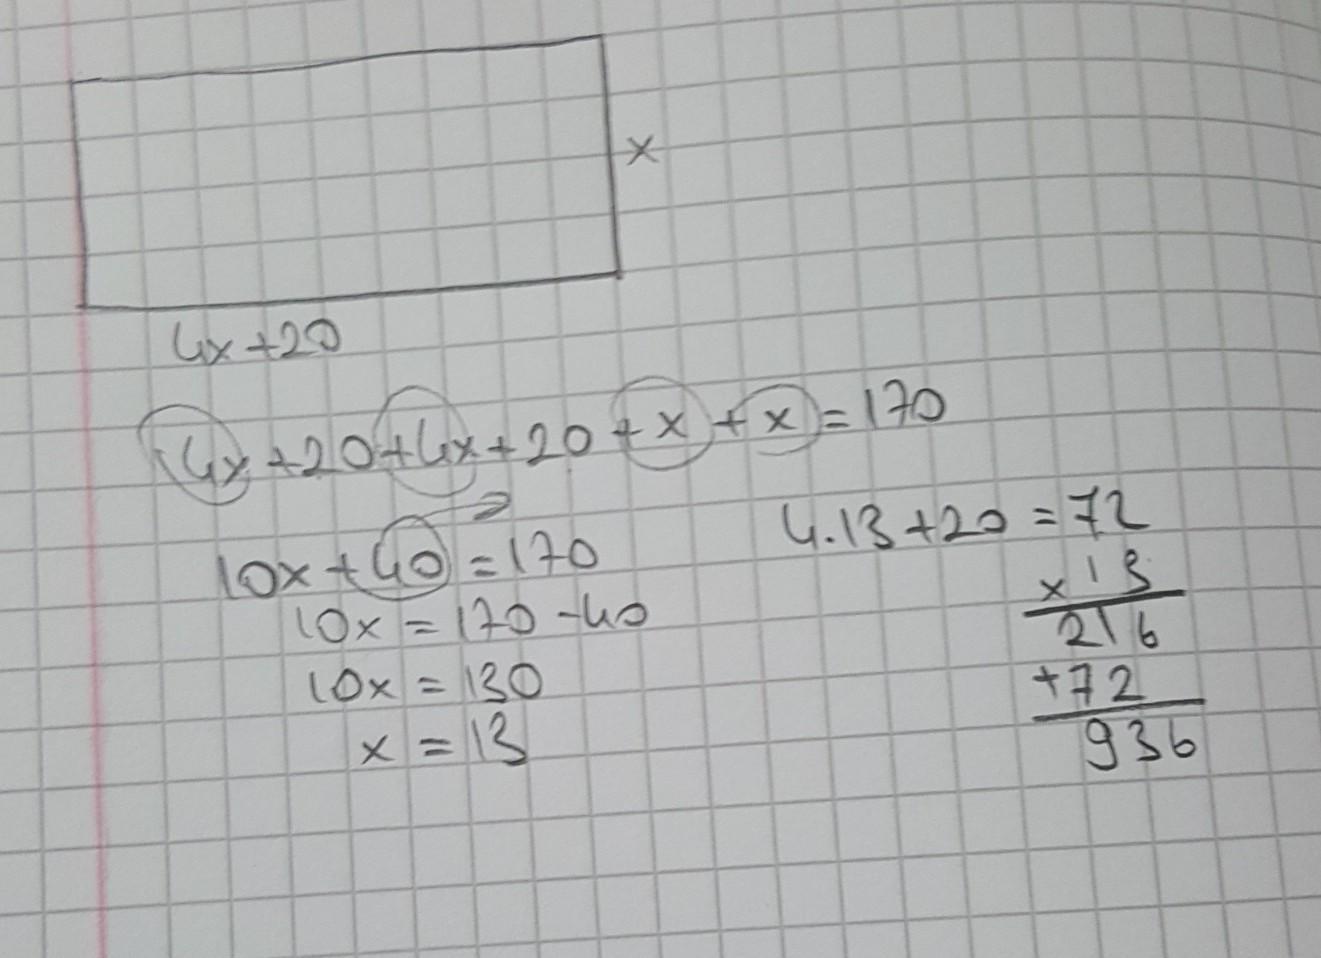 x
4x+20
4x+20+4x+20+x+x=170
10x+40=170
10x=170-40
10x=130
x=13
4.13+20=72
x13
216
+72
936